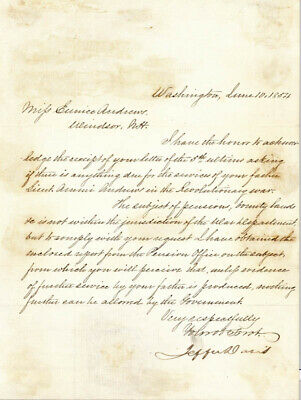 Washington, June 10, 1854
Miss Eunice Andrews,
Windsor, NH.
I have the honor to acknow
ledge the receipt of your letter of the 5th ultimo asking
if there is anything due for the services of your father
Lieut. Ammi Andrews in the Revolutionary war.
The subject of pensions, bounty lands
&c is not within the jurisdiction of the War Department
but to comply with your request I have obtained the
enclosed report from the Pension Office on the subject,
from which you will perceive that, unless evidence
of further service by your father is produced, nothing
further can be allowed by the Government.
Very respectfully
Yr. Obt. Servt.
Jeffn Davis